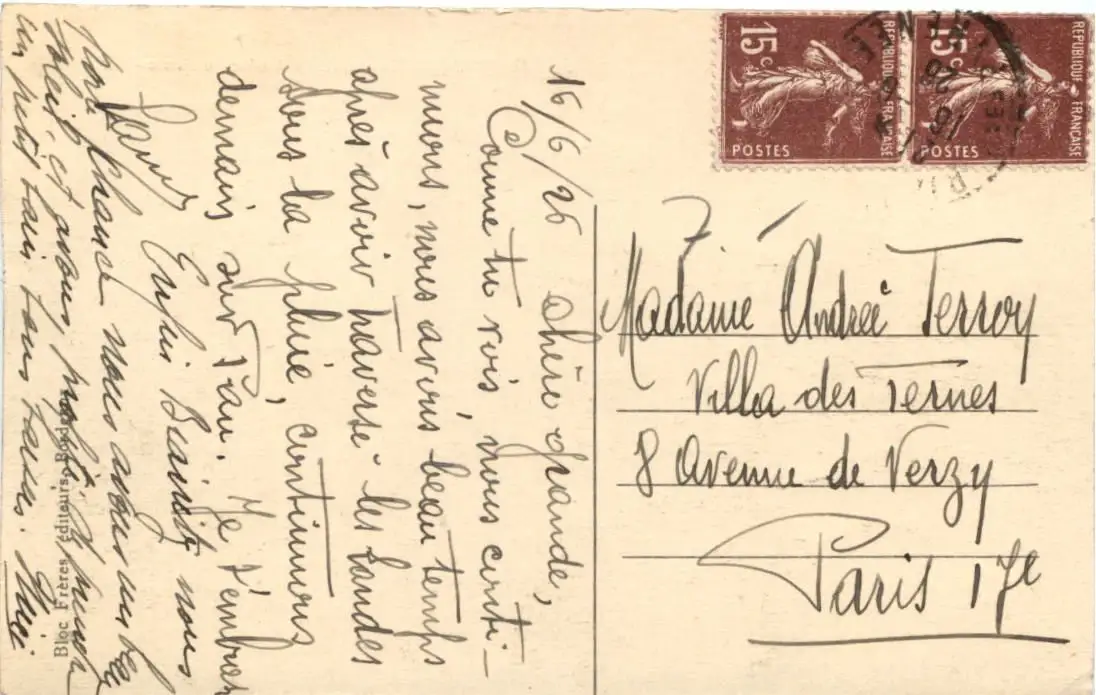 16/6/26 chère grande,
Comme tu vois, nous conti-
nuons, nous avons beau temps
après avoir traversé les Landes
sous la pluie, continuons
demain sur Pau. Je t'embrasse
Enfin Biarritz nous
Par chance nous avons un beau
soleil et avons profité
un petit bain tous
REPUBLIQUE FRANÇAISE
15c
POSTES
REPUBLIQUE FRANÇAISE
15c
POSTES
Madame Andrée Terroy
Villa des Ternes
8 Avenue de Verzy
Paris 17e
Bloc Frères éditeurs, Bordeaux